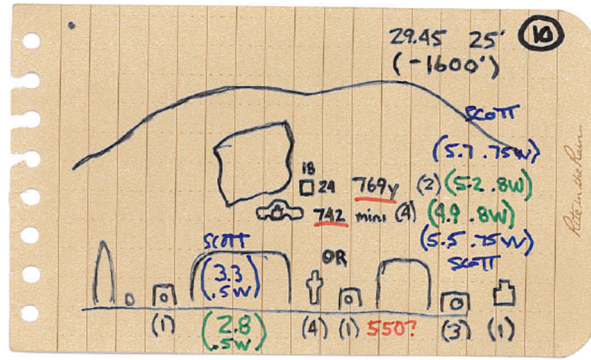 29.45 25' 10
(-1600')
SCOTT
(5.7 .75W)
18
24 769y (2) (5.2 .8W)
742 mini (4) (4.9 .8W)
(5.5 .75W)
SCOTT
SCOTT
OR
(3.3
.5W)
(1) (2.8
.5W) (4) (1) 550? (3) (1)
Rite in the Rain